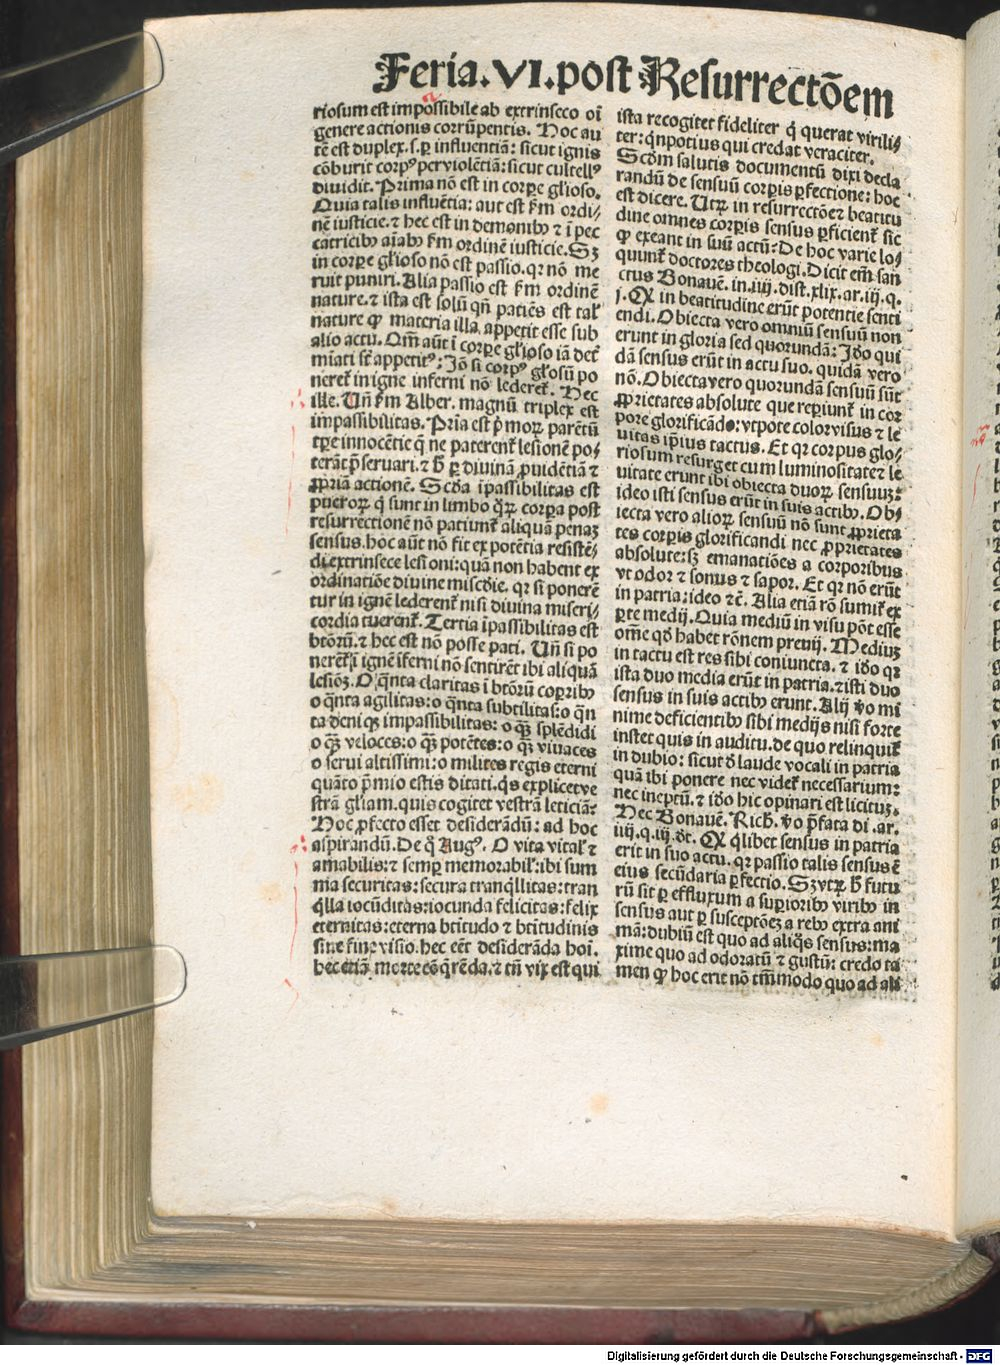 Feria.VI.post Resurrectōem
riosum est impossibile ab extrinseco oī
genere actionis corrūpentis. Hoc au
tē est duplex.s.ꝑ influentiā: sicut ignis
cōburit corpꝰ per violētiā: sicut cultellꝰ
diuidit. Prima nō est in corpe gl̄ioso.
Quia talis influētia: aut est ẜm ordi⸗
nē iusticie.⁊ hec est in demonibꝰ ⁊ ī pec
catricibꝰ aīabꝰ ẜm ordinē iusticie. Sꝫ
in corpe gl̄ioso nō est passio.qꝛ nō me
ruit puniri. Alia passio est ẜm ordinē
nature.⁊ ista est solū qn̄ patiēs est tal'
nature ꝙ materia illa appetit esse sub
alio actu. Om̄ aūt ī corpe gl̄ioso iā det̄
miati st̄ appetitꝰ: Jō si corpꝰ gl̄osū po
neret̄ in igne inferni nō lederet̄. Hec
ille. Un̄ ẜm Alber. magnū triplex est
impassibilitas. Pria est pͥ moꝝ parētū
tpe innocētie q̄ ne paterent̄ lesionē po⸗
terāt p̄seruari.⁊ ħ ꝑ diuinā ꝓuidētiā ⁊
ꝓpriā actionē. Scd̄a īpassibilitas est
pueroꝝ qͥ sunt in limbo qͦꝝ corpa post
resurrectionē nō patiunt̄ aliquā penaꝫ
sensus.hoc aūt nō fit ex potētia resistē⸗
di extrinsece lesioni:quā non habent ex
ordinatiōe diuine miscd̄ie. qꝛ si ponerē
tur in ignē lederent̄ nisi diuina miseri⸗
cordia tuerent̄. Tertia īpassibilitas est
btōrū.⁊ hec est nō posse pati. Un̄ si po
nerēt̄ ī ignē īferni nō sentirēt ibi aliquā
lesiōꝫ. O qͣnta claritas ī btōrū corꝑibꝰ
o qͣnta agilitas: o qͣnta subtilitas:o qͣn
ta deniqꝫ impassibilitas: o qͣꝫ splēdidi
o qͣꝫ veloces:o qͣꝫ potētes:o qͣꝫ viuaces
o serui altissimi:o milites regis eterni
quāto p̄mio estis ditati.qͥs explicet ve
strā gl̄iam.quis cogitet vestrā leticiā:
Hoc ꝓfecto esset desiderādū: ad hoc
aspirandū. De qͦ Augꝰ. O vita vital' ⁊
amabilis:⁊ semꝑ memorabil':ibi sum
ma securitas: secura tranqͥllitas: tran
qͥlla iocūditas:iocunda felicitas: felix
eternitas: eterna btitudo ⁊ btitudinis
sine fine visio. hec eēt desiderāda hoī.
hec etiā morte cōqͥrēda.⁊ tn̄ vix est qui
ista recogitet fideliter qͥ querat virili⸗
ter: qͥnpotius qui credat veraciter.
Scd̄m salutis documentū dixi decla
randū de sensuū corpis ꝑfectione: hoc
est dicere. Utꝝ in resurrectōe⁊ beatitu
dine omnes corpis sensus ꝑficient̄ sic
ꝙ exeant in suū actū: De hoc varie lo⸗
quunt̄ doctores theologi. Dicit em̄ san
ctus Bonauē. in.iiij. dist.xlix.ar.iij.q.
j. Qꝫ in beatitudine erūt potentie senti
endi. Obiecta vero omniū sensuū non
erunt in gloria sed quorundā: Jdo qui
dā sensus erūt in actu suo. quidā vero
nō. Obiecta vero quorundā sensuū sūt
ꝓprietates absolute que repiunt̄ in cor
pore glorificādo: vtpote color visus ⁊ le
uitas ip̄ius tactus. Et qꝛ corpus glo⸗
riosum resurget cum luminositate⁊ le
uitate erunt ibi obiecta duoꝝ sensuuꝫ:
ideo isti sensus erūt in suis actibꝰ. Ob⸗
iecta vero alioꝝ sensuū nō sunt ꝓprieta
tes corpis glorificandi nec ꝓprietates
absolute:sꝫ emanatiōes a corporibus
vt odor ⁊ sonus ⁊ sapor. Et qꝛ nō erūt
in patria:ideo ⁊c̄. Alia etiā rō sumit̄ ex
ꝑte medij. Quia mediū in visu pōt esse
om̄e qd̄ habet rōnem preuij. Mediuꝫ
in tactu est res sibi coniuncta. ⁊ ido qꝛ
ista duo media erūt in patria.⁊ isti duo
sensus in suis actibꝰ erunt. Alij v̄o mi
nime deficientibꝰ sibi medijs nisi forte
instet quis in auditu.de quo relinquit̄
in dubio: sicut d̄ laude vocali in patria
quā ibi ponere nec videt̄ necessarium:
nec ineptū.⁊ ido hic opinari est licituꝫ.
Hec Bonauē. Rich̄. v̄o p̄fata di.ar.
iiij.q.iij.d̄t. Qꝫ qͥlibet sensus in patria
erit in suo actu. qꝛ passio talis sensus ē
eius secūdaria ꝑfectio. Sꝫ vtꝝ ħ futu
rū sit ꝑ effluxum a suꝑioribꝰ viribꝰ in
sensus aut ꝑ susceptōeꝫ a rebꝰ extra ani
mā: dubiū est quo ad aliqͦs sensus:ma
xime quo ad odoratū ⁊ gustū: credo ta
men ꝙ hoc erit nō tm̄modo quo ad ali
Digitalisierung gefördert durch die Deutsche Forschungsgemeinschaft - DFG